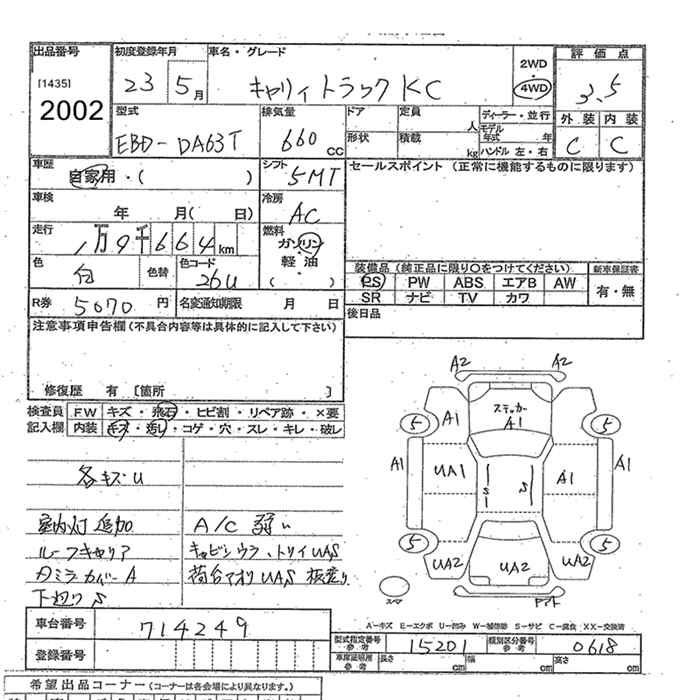 出品番号 初度登録年月 車名・グレード 評価点
[1435] 23 5月 キャリィトラック KC 2WD 3.5
2002 4WD
型式 排気量 ドア 定員 人 ディーラー・並行 外装 内装
EBD-DA63T 660cc 形状 積載 kg モデル年式 年 C C
ハンドル 左・右
車歴 シフト セールスポイント（正常に機能するものに限ります）
自家用・( ) 5MT
車検 冷房
年 月( 日) AC
走行 燃料
1万9千664km ガソリン
軽油
( )
色 色替 色コード 装備品（純正品に限り○をつけてください） 新車保証書
白 26U PS PW ABS エアB AW 有・無
R券 5070円 名変通知期限 月 日 SR ナビ TV カワ
注意事項申告欄（不具合内容等は具体的に記入して下さい） 後日品
修復歴 有 〔箇所 〕
検査員 FW キズ・飛石・ヒビ割・リペア跡・×要
記入欄 内装 キズ・汚れ・コゲ・穴・スレ・キレ・破レ
A2 A2
ステッカー
A1 A1
5 5
A1 UA1 S S A1 A1
5 5
UA2 UA2 UA2
各キズU
室内灯追加 A/C 弱い
ルーフキャリア キャビンウラ、トリイUAS
荷台アオリUAS 板塗り
下廻りS
スペア
A－キズ E－エクボ U－凹み W－補修跡 S－サビ C－腐食 XX－交換済
車台番号 714249
型式指定番号 参考 15201 類別区分番号 参考 0618
登録番号 車庫証明用 参考 長さ cm 幅 cm 高さ cm
希望出品コーナー（コーナーは各会場により異なります。）